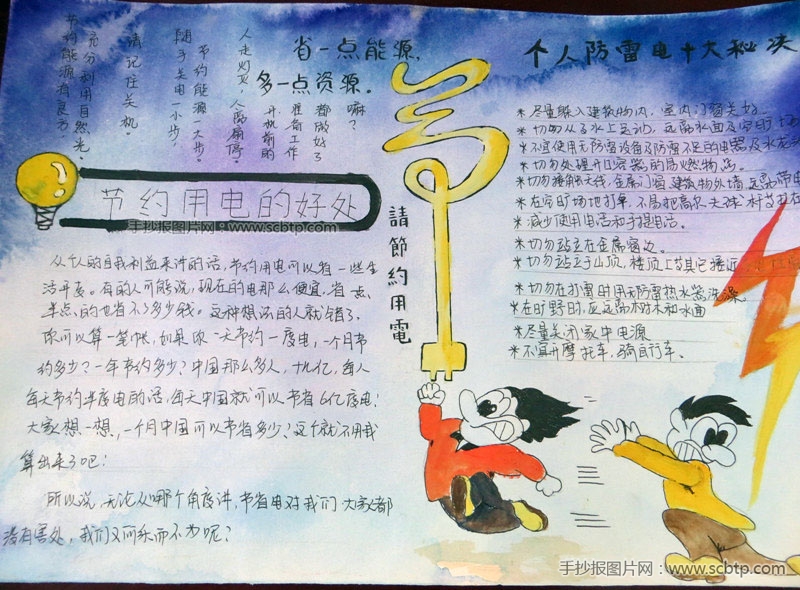 节约能源有良方
充分利用自然光。
请记住关机。
随手关电一小步，
节约能源一大步。
人走灯灭，人离扇停。
省一点能源，
多一点资源。
开机前的
准备工作
都做好了
嘛？
节约用电的好处
手抄报图片网：www.scbtp.com
从个人的自我利益来讲的话，节约用电可以省一些生
活开支。有的人可能说，现在的电那么便宜，省一点
半点的也省不了多少钱。这种想法的人就错了，
你可以算一笔帐，如果你一天节约一度电，一个月节
约多少？一年节约多少？中国那么多人，十几亿，每人
每天节约半度电的话，每天中国就可以节省6亿度电！
大家想一想，一个月中国可以节省多少？这个就不用我
算出来了吧！
所以说，无论从哪个角度讲，节省电对我们大家都
没有害处，我们又何乐而不为呢？
請節約用電
个人防雷电十大秘决
*尽量躲入建筑物内，室内门窗关好。
*切勿从事水上运动，远离水面及空旷
*不宜使用无防雷设备及防雷不足的电器及水龙头
*切勿处理开口容器的易燃物品。
*切勿接触天线，金属门窗，建筑物外墙，远离带电
*在空旷场地打伞，不易把高尔夫球
*减少使用电话和手提电话。
*切勿站立在金属窗边。
*切勿站立于山顶，楼顶上或其它接近
*切勿在打雷时用无防雷热水器洗澡
*在旷野时，应远离树木和水面
*尽量关闭家中电源
*不宜开摩托车，骑自行车。
手抄报图片网：www.scbtp.com